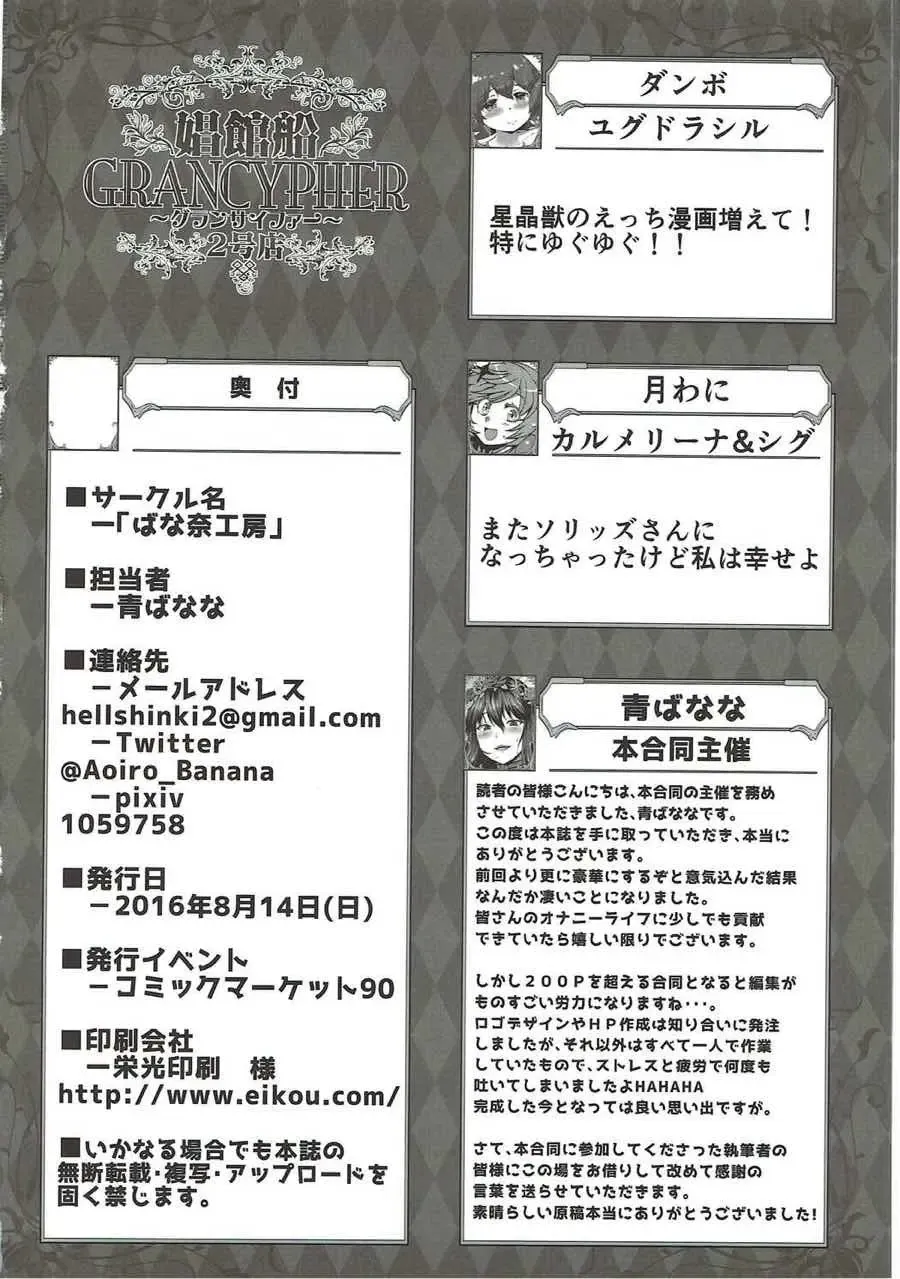 娼館船
GRANCYPHER
～グランサイファー～
2号店
奥 付
■サークル名
ー「ばな奈工房」
■担当者
ー青ばなな
■連絡先
ーメールアドレス
hellshinki2@gmail.com
ーTwitter
@Aoiro_Banana
ーpixiv
1059758
■発行日
ー2016年8月14日(日)
■発行イベント
ーコミックマーケット90
■印刷会社
ー栄光印刷 様
http://www.eikou.com/
■いかなる場合でも本誌の
無断転載・複写・アップロードを
固く禁じます。
ダンボ
ユグドラシル
星晶獣のえっち漫画増えて！
特にゆぐゆぐ！！
月わに
カルメリーナ&シグ
またソリッズさんに
なっちゃったけど私は幸せよ
青ばなな
本合同主催
読者の皆様こんにちは、本合同の主催を務め
させていただきました、青ばななです。
この度は本誌を手に取っていただき、本当に
ありがとうございます。
前回より更に豪華にするぞと意気込んだ結果
なんだか凄いことになりました。
皆さんのオナニーライフに少しでも貢献
できていたら嬉しい限りでございます。
しかし２００Ｐを超える合同となると編集が
ものすごい労力になりますね・・・。
ロゴデザインやＨＰ作成は知り合いに発注
しましたが、それ以外はすべて一人で作業
していたもので、ストレスと疲労で何度も
吐いてしまいましたよHAHAHA
完成した今となっては良い思い出ですが。
さて、本合同に参加してくださった執筆者の
皆様にこの場をお借りして改めて感謝の
言葉を送らせていただきます。
素晴らしい原稿本当にありがとうございました！